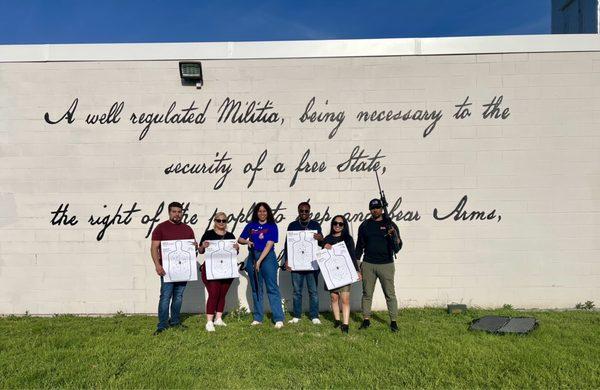 A well regulated Militia, being necessary to the
security of a free State,
the right of the people to keep and bear Arms,